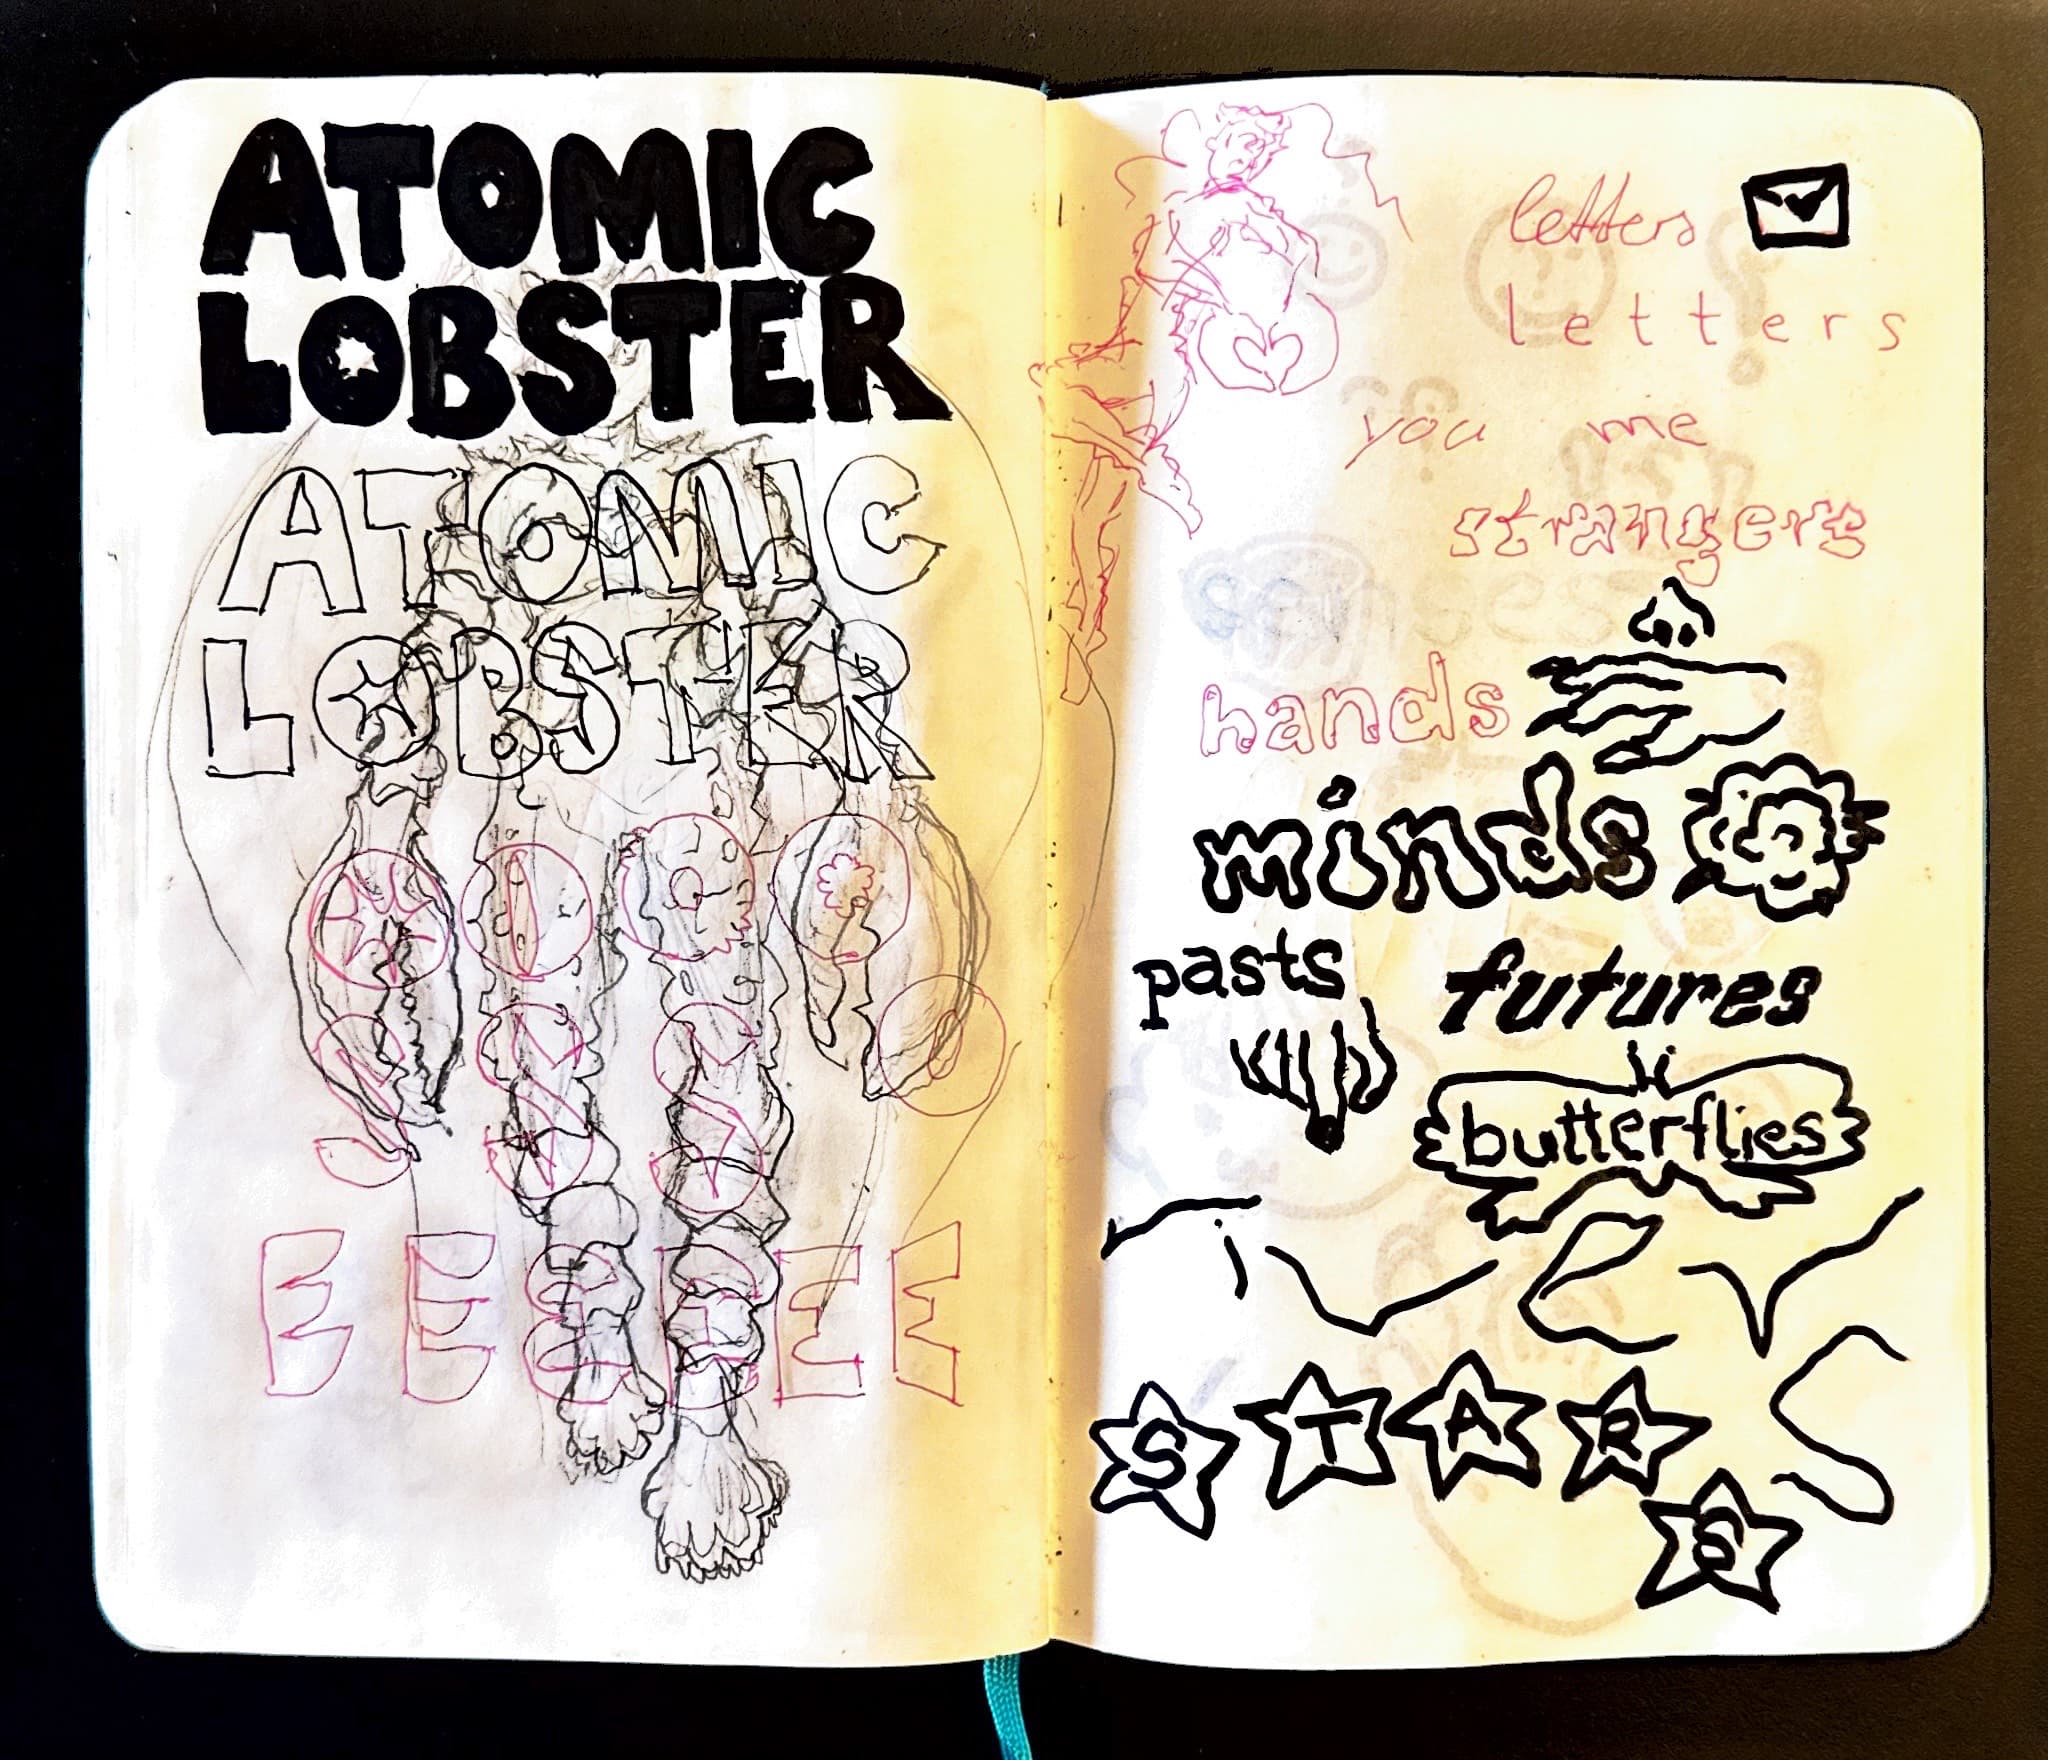 ATOMIC
LOBSTER
ATOMIC
LOBSTER
letters
letters
you me
strangers
hands
minds
pasts
futures
butterflies
STARS